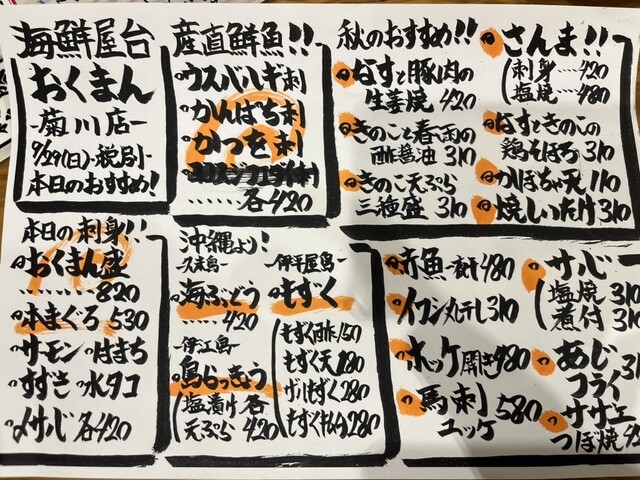 海鮮屋台
おくまん
-菊川店-
9/29(日)-税別-
本日のおすすめ!
産直鮮魚!!
・ウスバハギ刺
・かんぱち刺
・かつを刺
‥‥‥各420
秋のおすすめ!!
・なすと豚肉の
生姜焼 420
・きのこと春菊の
酢醤油 310
・きのこ天ぷら
三種盛 310
・さんま!!
(刺身‥‥420
塩焼‥‥480
・なすときのこの
鶏そぼろ 310
・かぼちゃ天 110
・焼しいたけ 310
本日の刺身!!
・おくまん盛
‥‥‥‥820
・本まぐろ 530
・サーモン ・はまち
・すずき ・水タコ
・〆サバ 各420
沖縄より!
-久米島-
・海ぶどう
‥‥‥420
-伊江島-
・島らっきょう
(塩漬け 各
天ぷら 420
-伊平屋島-
・もずく
(もずく酢 150
もずく天 180
もずくキムチ 280
・赤魚一夜干 480
・イワシ丸干し 310
・ホッケ開き 980
・馬刺 580
ユッケ
・サバ
(塩焼 310
煮付 310
・あじ
フライ
・サザエ
つぼ焼